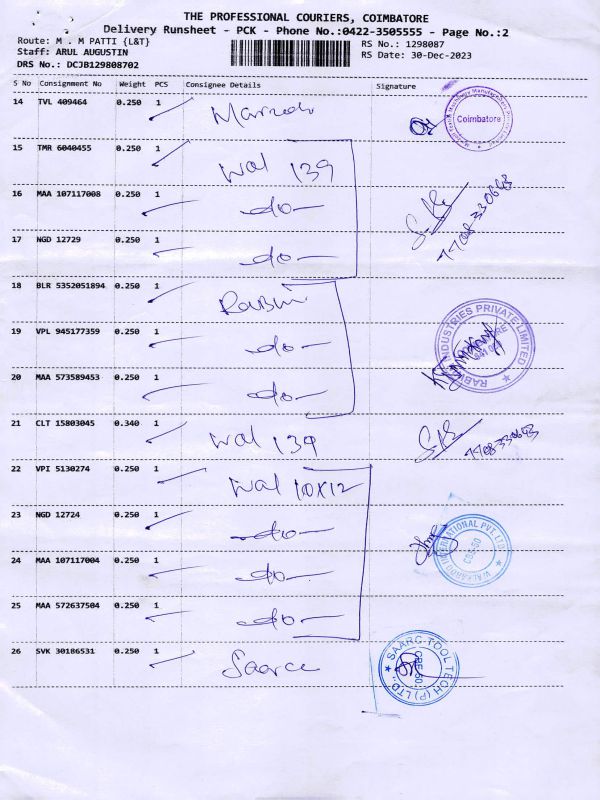 THE PROFESSIONAL COURIERS, COIMBATORE
Delivery Runsheet - PCK - Phone No.:0422-3505555 - Page No.:2
Route: M . M PATTI {L&T}
RS No.: 1298087
Staff: ARUL AUGUSTIN
RS Date: 30-Dec-2023
DRS No.: DCJB129808702
S No Consignment No Weight PCS Consignee Details Signature
14 TVL 409464 0.250 1
Coimbatore
15 TMR 6040455 0.250 1 Wal 139
16 MAA 107117008 0.250 1 -do-
7708330643
17 NGD 12729 0.250 1 -do-
18 BLR 5352051894 0.250 1 Rabwin
19 VPL 945177359 0.250 1 -do-
INDUSTRIES PRIVATE LIMITED
20 MAA 573589453 0.250 1 -do-
21 CLT 15803045 0.340 1 Wal 139 7708330643
22 VPI 5130274 0.250 1 Wal 10X12
23 NGD 12724 0.250 1 -do-
INTERNATIONAL PVT. LTD
24 MAA 107117004 0.250 1 -do-
25 MAA 572637504 0.250 1 -do-
26 SVK 30186531 0.250 1 Saarc
SAARC TOOL TECH (P) LTD.,